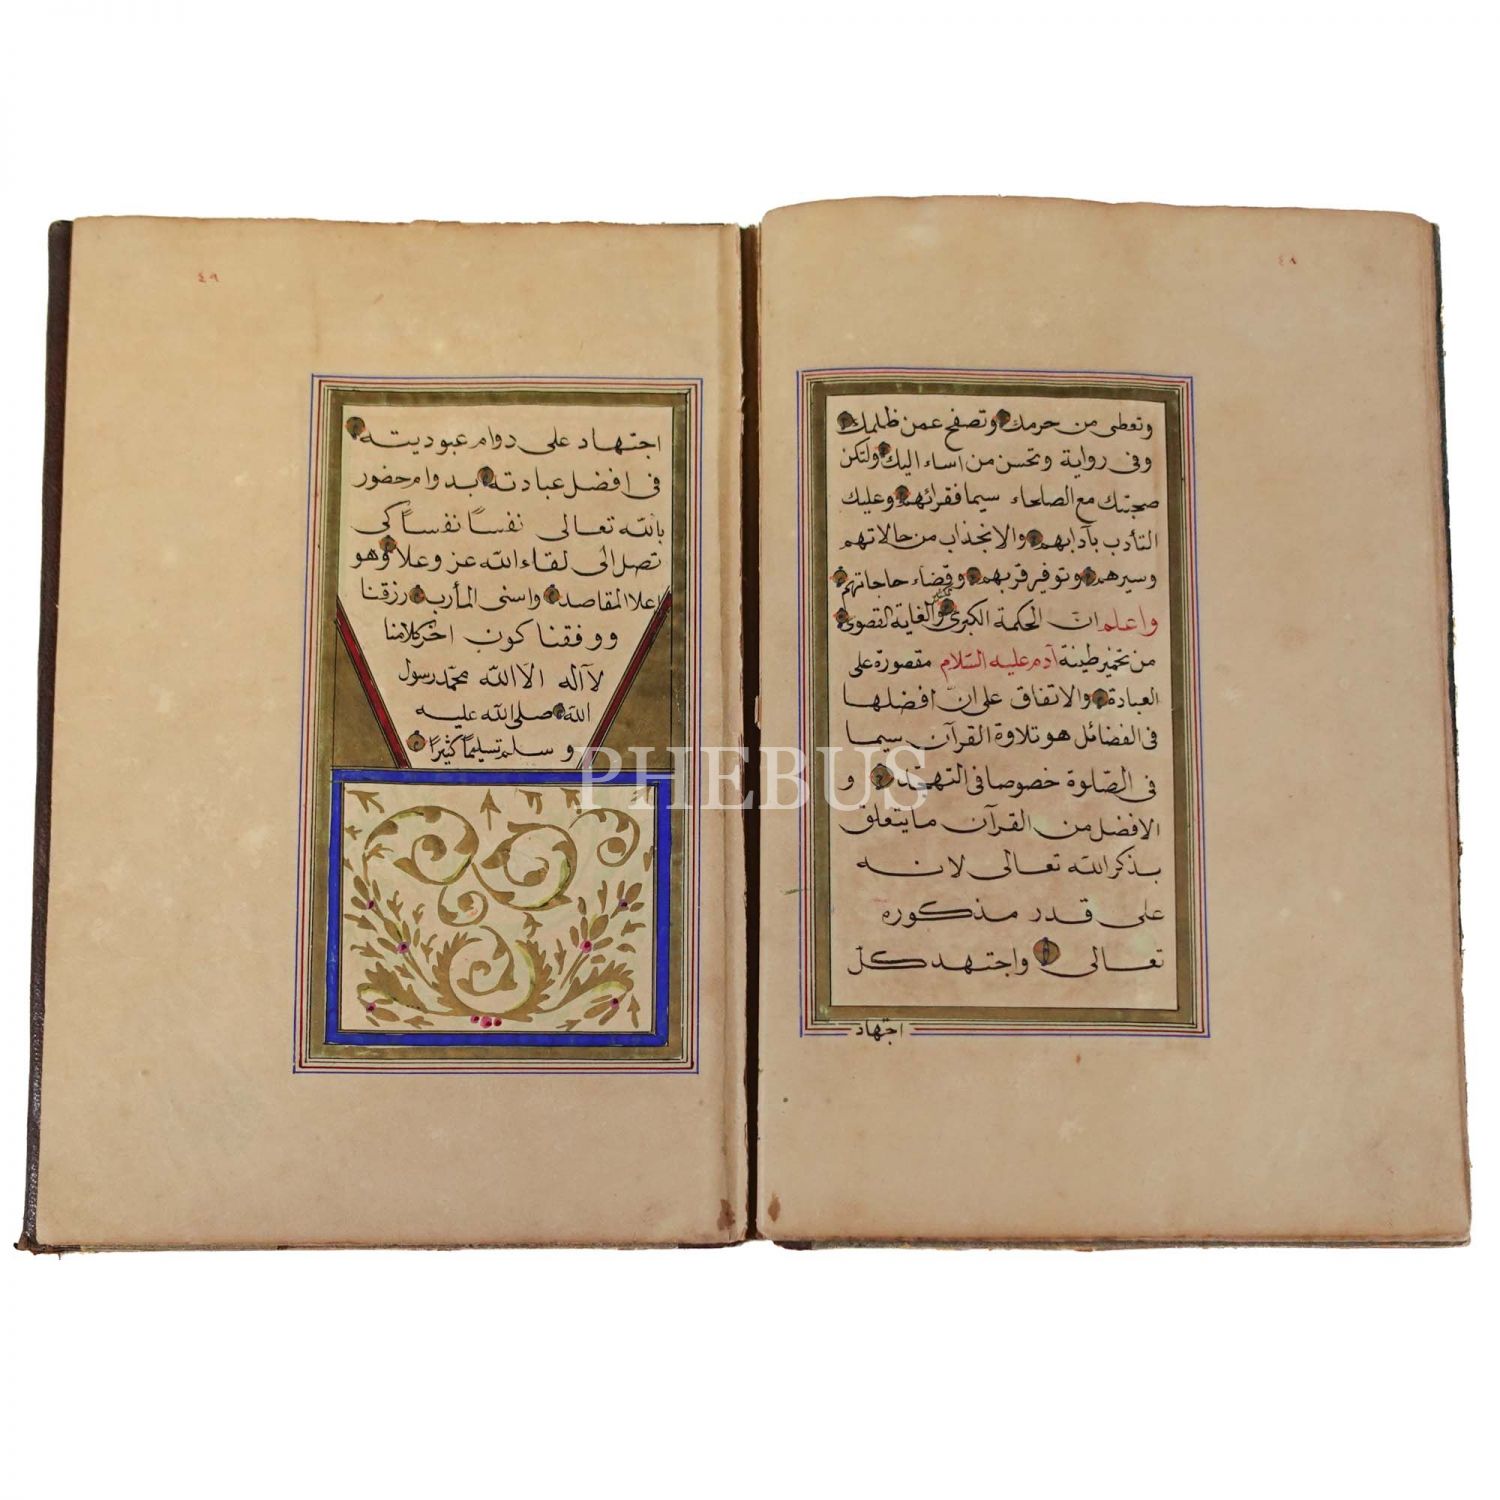 ٤٨
وتعطى من حرمك وتصفح عمن ظلمك
وفى رواية وتحسن من اساء اليك ولتكن
صحبتك مع الصلحاء سيما فقرائهم وعليك
التأدب بآدابهم والانجذاب من حالاتهم
وسيرهم وتوفير قربهم وقضاء حاجاتهم
واعلم ان الحكمة الكبرى والغاية القصوى
من تخمير طينة آدم عليه السّلام مقصورة على
العبادة والاتفاق على انّ افضلها
فى الفضائل هو تلاوة القرآن سيما
فى الصّلوة خصوصا فى التهجّد و
الافضل من القرآن ما يتعلق
بذكر الله تعالى لانه
على قدر مذكوره
تعالى واجتهد كلّ
اجتهاد
٤٩
اجتهاد على دوام عبوديته
فى افضل عبادته بدوام حضور
بالله تعالى نفساً نفساً كى
تصل الى لقاء الله عز وعلا وهو
اعلا المقاصد واسنى المأرب رزقنا
ووفقنا كون اخر كلامنا
لآ اله الا الله محمد رسول
الله صلى الله عليه
و سلم تسليماً كثيراً
PHEBUS